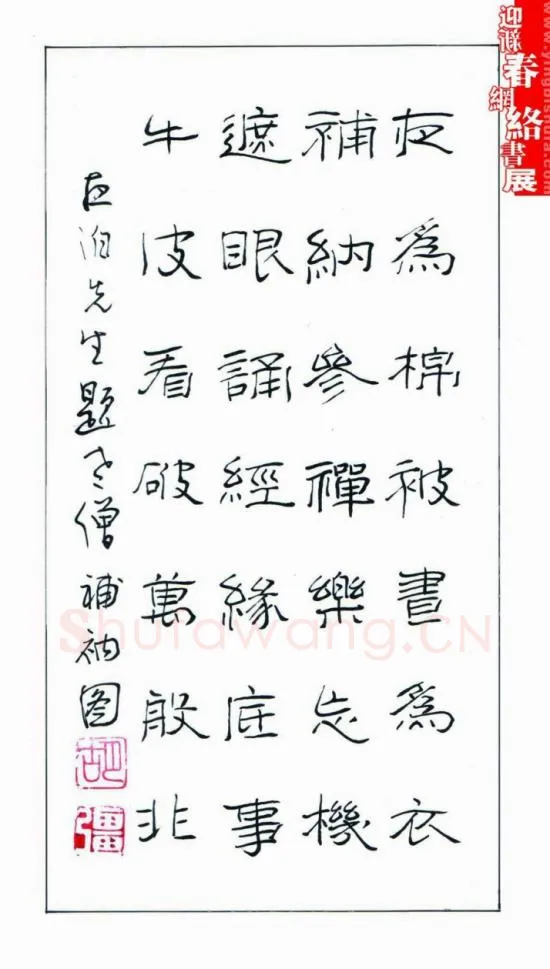 夜為棉被晝為衣
補納參禪樂忘機
遮眼誦經緣底事
牛皮看破萬般非
先生題老僧補衲图
胡
彊
春網絡書展
www.yingbishufa.com
Shufawang.CN